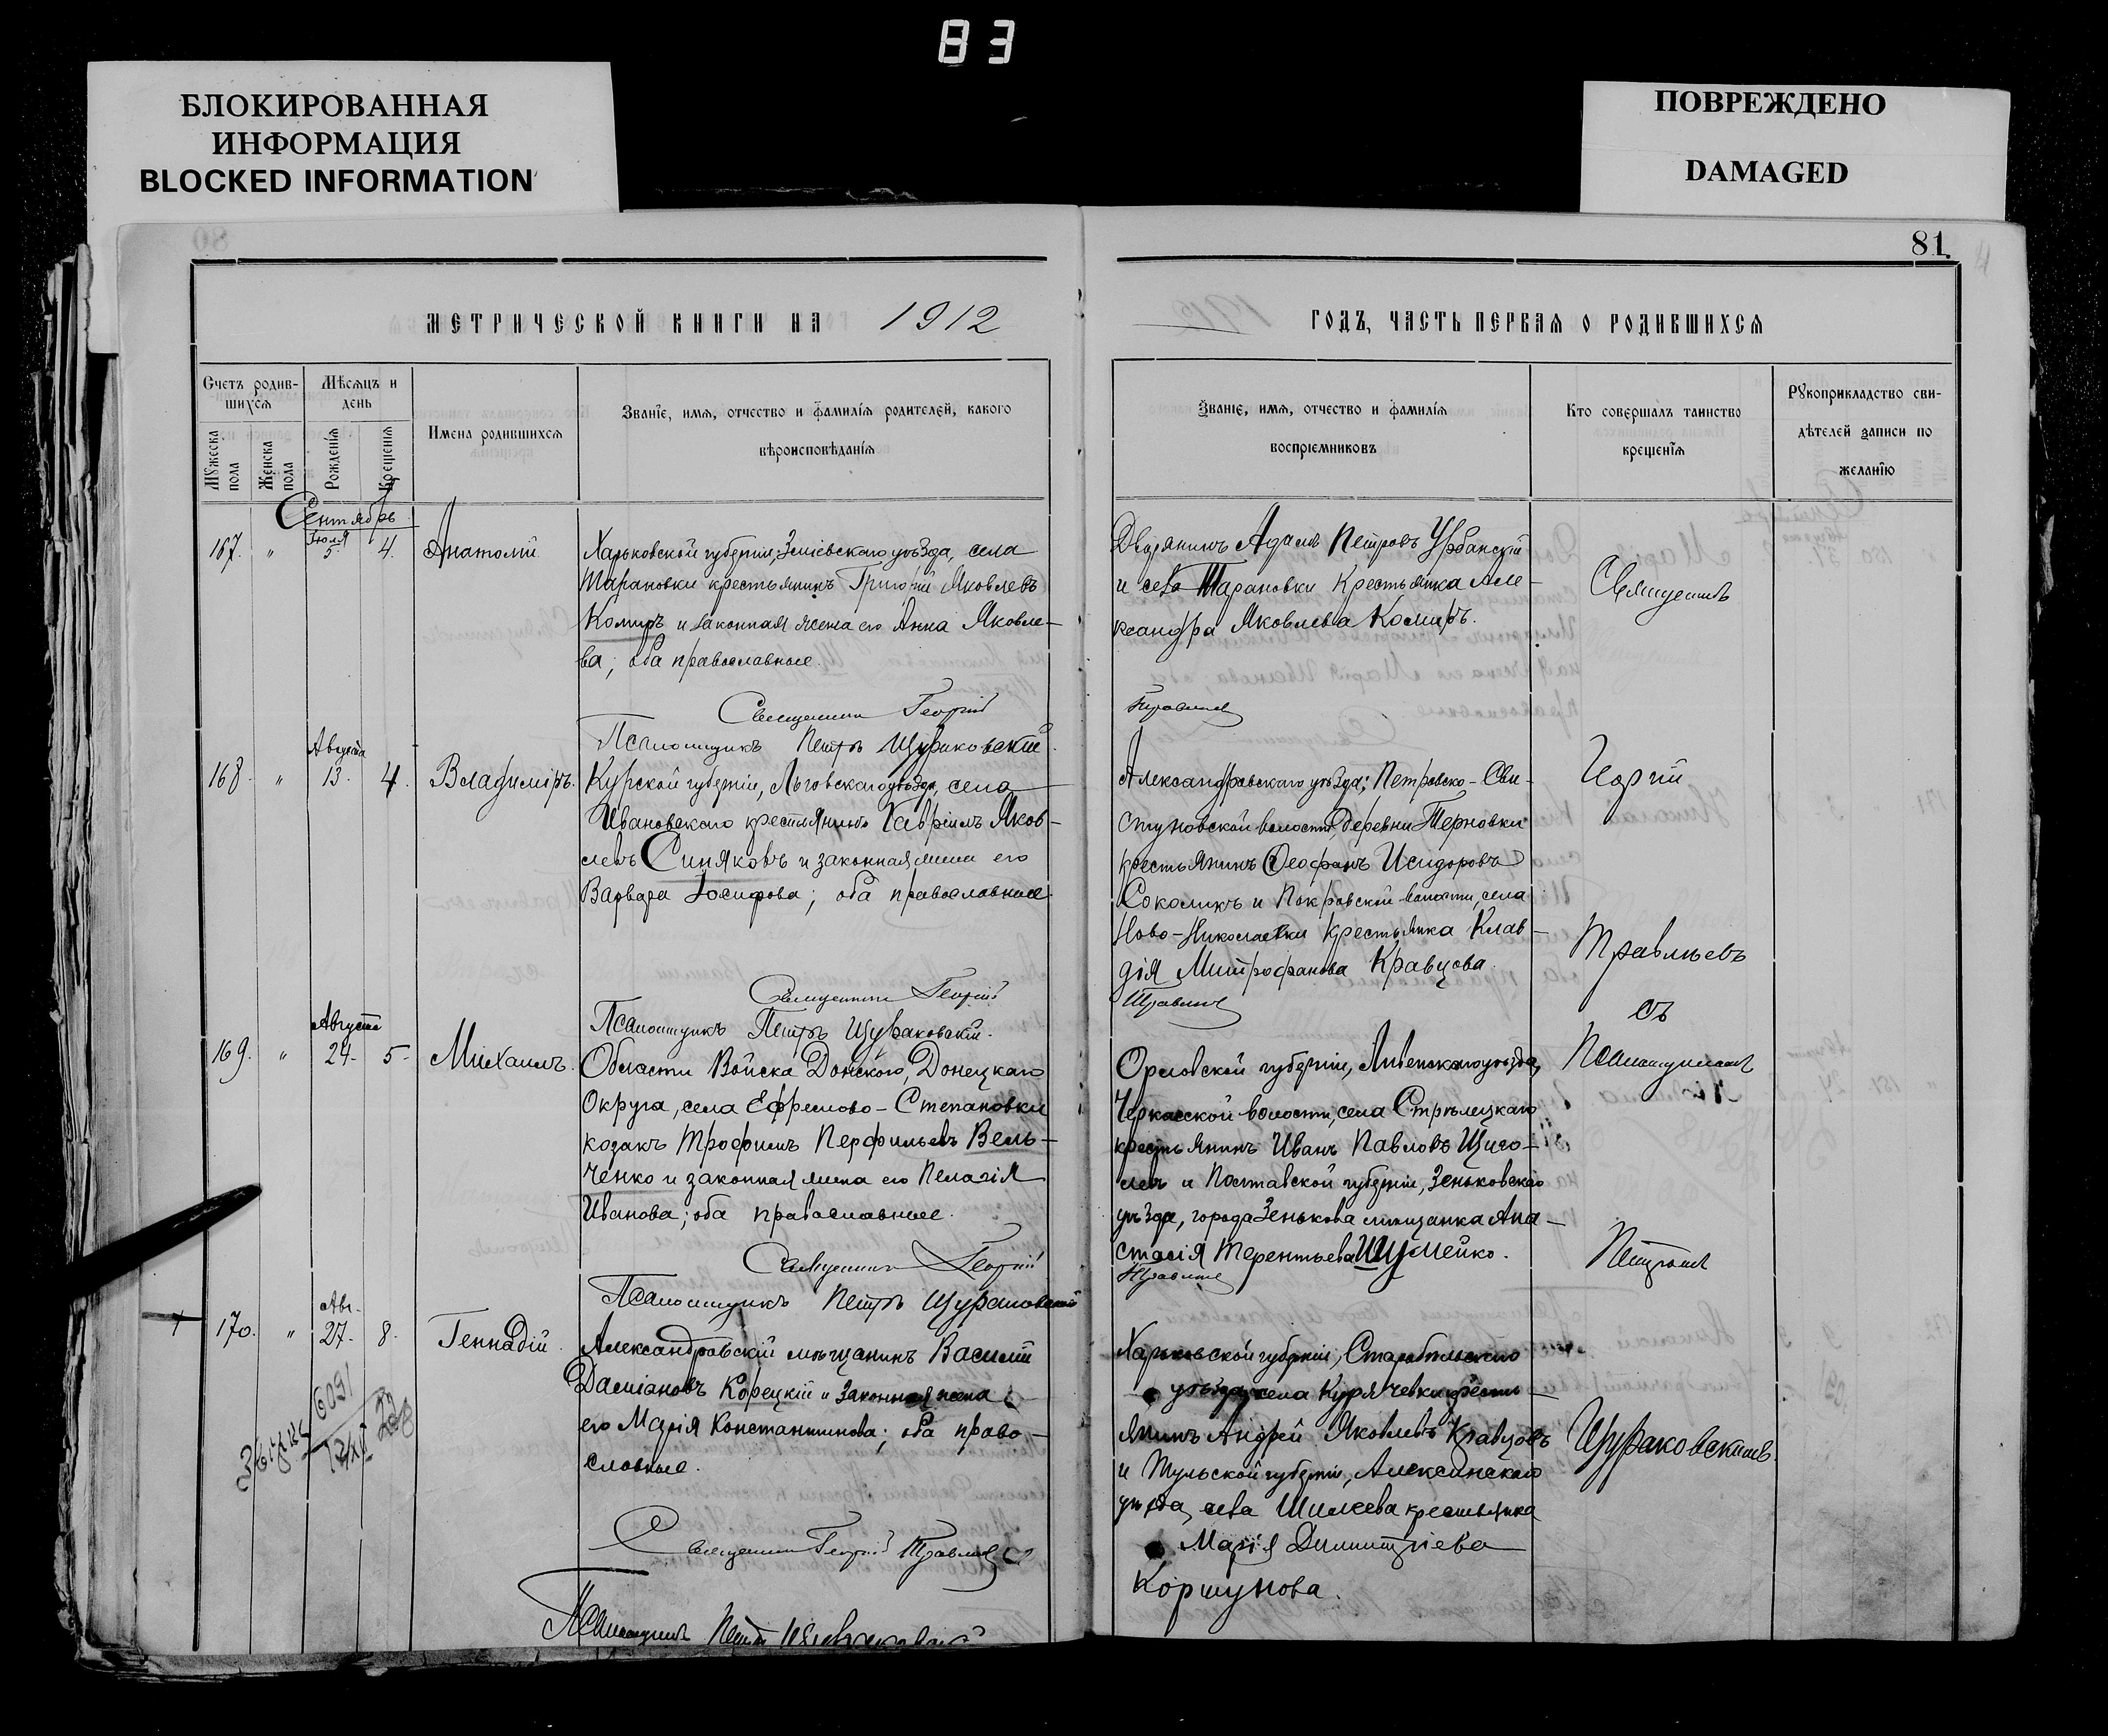 83
БЛОКИРОВАННАЯ
ИНФОРМАЦИЯ
BLOCKED INFORMATION
ПОВРЕЖДЕНО
DAMAGED
81
МЕТРИЧЕСКОЙ КНИГИ НА 1912
ГОДЪ, ЧАСТЬ ПЕРВАЯ О РОДИВШИХСЯ
Счетъ родив-
шихся
Мѣсяцъ и
день
Мужеска
пола
Женска
пола
Рожденія
Крещенія
Имена родившихся
Званіе, имя, отчество и фамилія родителей, какого
вѣроисповѣданія
Званіе, имя, отчество и фамилія
воспріемниковъ
Кто совершалъ таинство
крещенія
Рукоприкладство сви-
дѣтелей записи по
желанію
Сентябрь
167. " Іюля 5. 4. Анатолій
Харьковской губерніи, Зміевскаго уѣзда, села
Тарановки крестьянинъ Григорій Яковлевъ
Комиръ и законная жена его Анна Яковле-
ва; оба православные.
Священникъ Георгій
Псаломщикъ Петръ Щураковскій.
Дворянинъ Адамъ Петровъ Урбанскій
и села Тарановки крестьянка Але-
ксандра Яковлева Комиръ.
168. " Августа 13. 4. Владиміръ.
Курской губерніи, Льговскаго уѣзда, села
Ивановскаго крестьянинъ Гавріилъ Яков-
левъ Синяковъ и законная жена его
Варвара Іосифова; оба православные.
Священникъ Георгій
Псаломщикъ Петръ Щураковскій.
Александровскаго уѣзда; Петровско-Сви-
стуновской волости, деревни Терновки
крестьянинъ Ѳеофанъ Исидоровъ
Соколикъ и Покровской волости, села
Ново-Николаевки крестьянка Клав-
дія Митрофанова Кравцова.
169. " Августа 24. 5. Михаилъ.
Области Войска Донского, Донецкаго
Округа, села Ефремово-Степановки
козакъ Трофимъ Перфильевъ Вель-
ченко и законная жена его Пелагія
Иванова; оба православные.
Священникъ Георгій
Псаломщикъ Петръ Щураковскій
Орловской губерніи, Ливенскаго уѣзда,
Черкасской волости, села Стрѣлецкаго
крестьянинъ Иванъ Павловъ Щиго-
левъ и Полтавской губерніи, Зеньковскаго
уѣзда, города Зенькова мѣщанка Ана-
стасія Терентьева Шумейко.
170. " Авг. 27. 8. Геннадій.
Александровскій мѣщанинъ Василій
Даміановъ Корецкій и законная жена
его Марія Константинова; оба право-
славные.
Священникъ Георгій
Псаломщикъ Петръ Щураковскій
Харьковской губерніи, Старобѣльскаго
уѣзда, села Курячевки кресть-
янинъ Андрей Яковлевъ Кравцовъ
и Тульской губерніи, Алексинскаго
уѣзда, села Шилеева крестьянка
Марія Димитріева
Коршунова.
Священникъ
Георгій
Правлѣевъ
съ
Псаломщикомъ
Петромъ
Щураковскимъ.